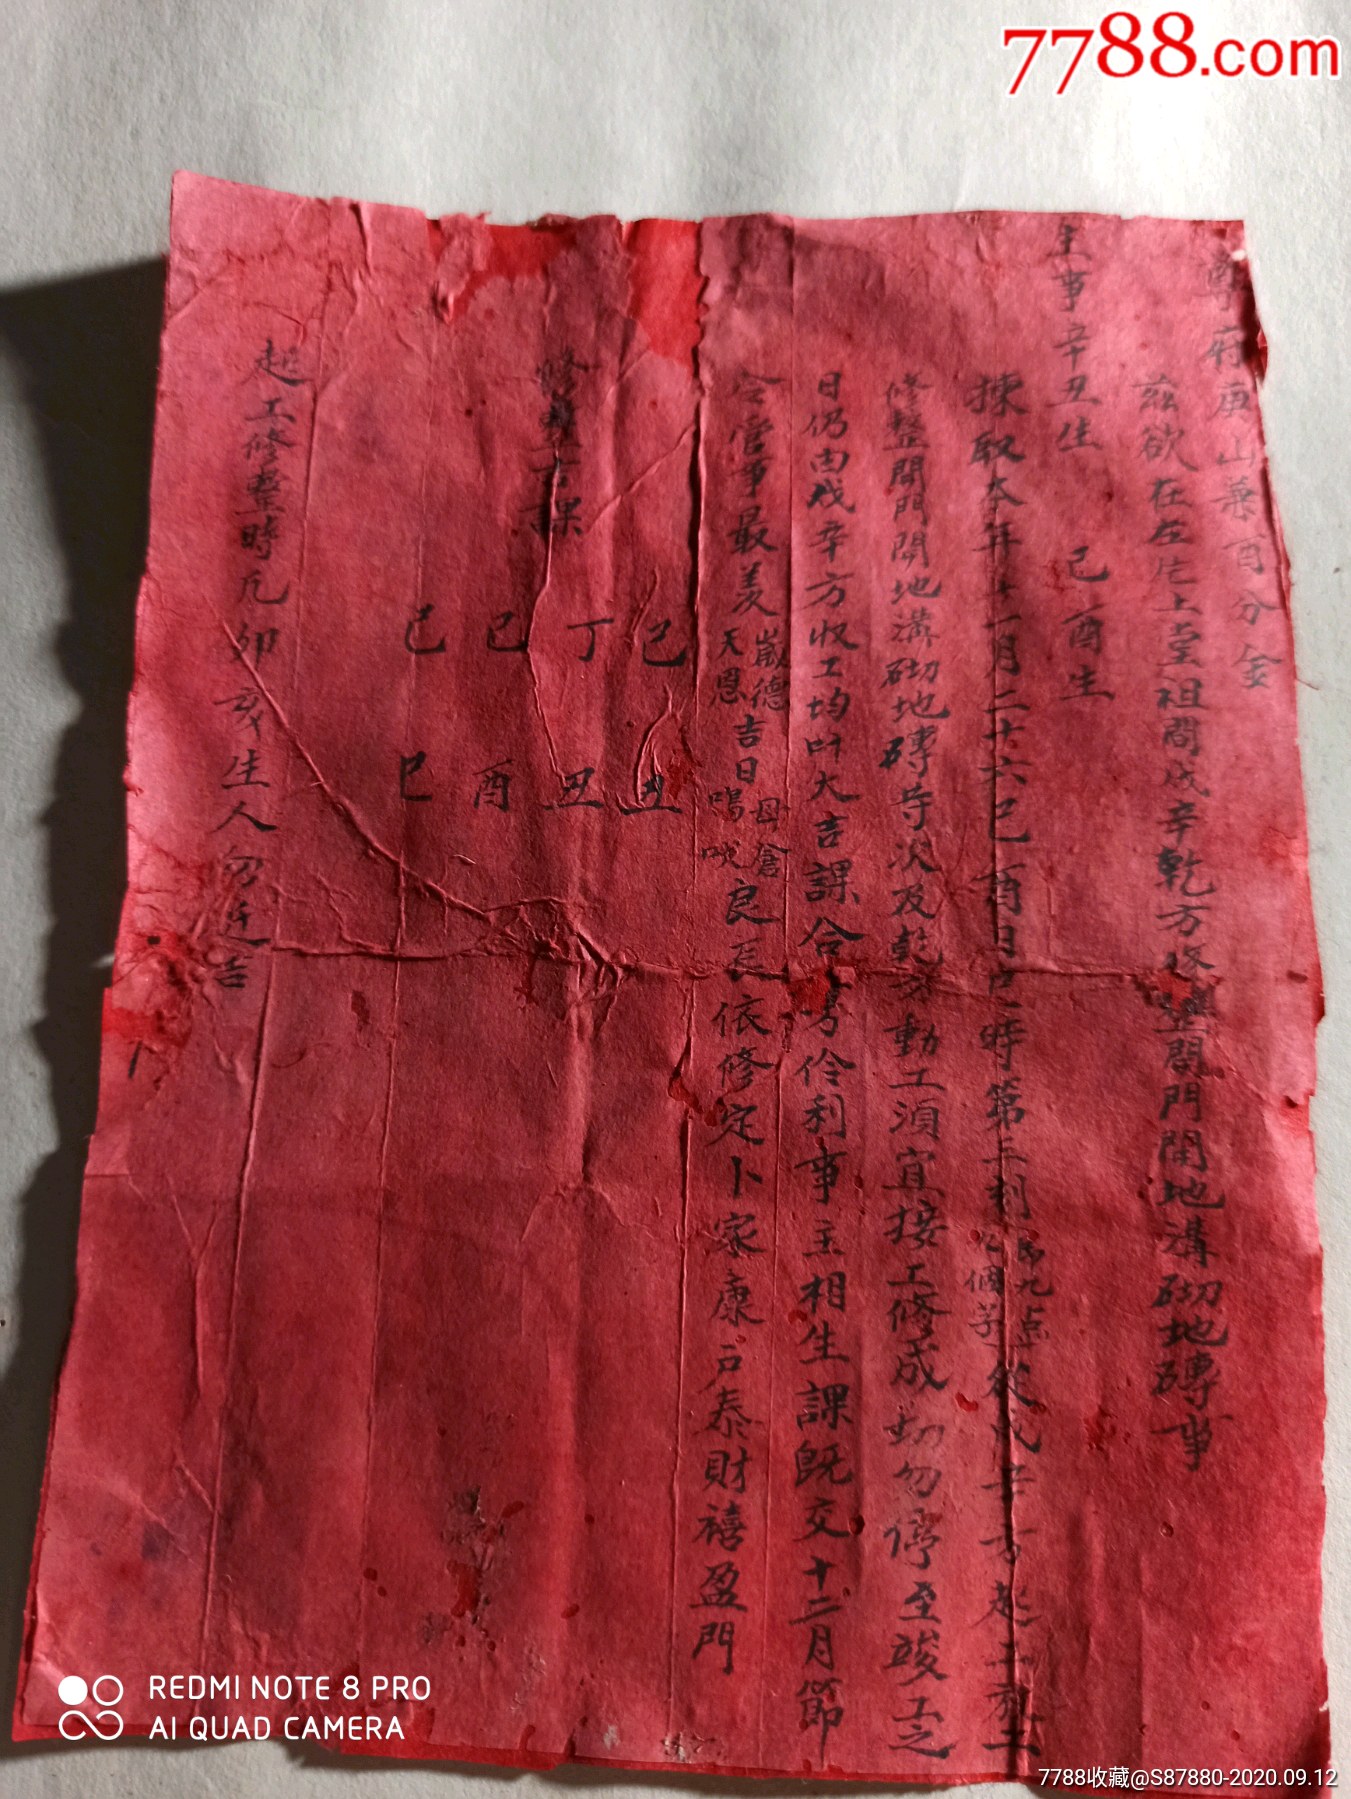 7788.com
尊府庚山兼酉分金
茲欲在左片上堂祖間戌辛乾方修整開門開地溝砌地磚事
主事辛丑生 己酉生
揀取本年十一月二十六己酉日巳時第三刻 九点 從戌辛方起工
修整開門開地溝砌地磚等次及乾方動工須宜接工修成切勿停至竣工之
日仍由戌辛方收工均叶大吉課合 伶利事主相生課既交十二月節
令管事最美 歲德 天恩 吉日 母倉 鳴吠 良辰依修定卜家康戶泰財禧盈門
修整吉課
己丑 丁丑 己酉 己巳
起工修整時凡卯亥生人勿近吉
REDMI NOTE 8 PRO
AI QUAD CAMERA
7788收藏@S87880-2020.09.12